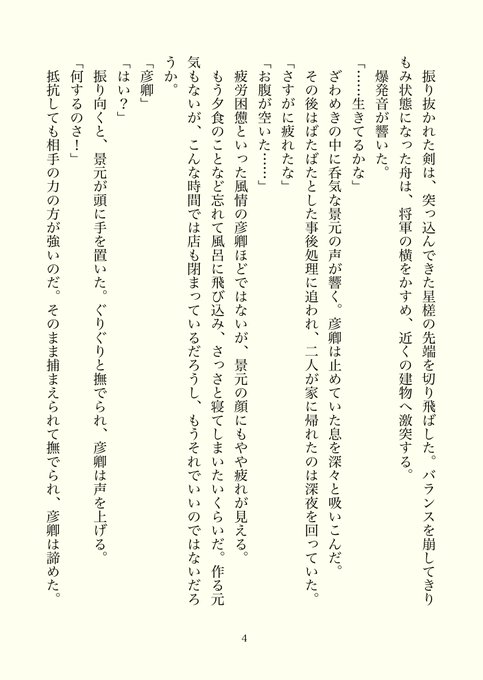 振り抜かれた剣は、突っ込んできた星槎の先端を切り飛ばした。バランスを崩してきり
もみ状態になった舟は、将軍の横をかすめ、近くの建物へ激突する。
爆発音が響いた。
「……生きてるかな」
ざわめきの中に呑気な景元の声が響く。彦卿は止めていた息を深々と吸いこんだ。
その後はばたばたとした事後処理に追われ、二人が家に帰れたのは深夜を回っていた。
「さすがに疲れたな」
「お腹が空いた……」
疲労困憊といった風情の彦卿ほどではないが、景元の顔にもやや疲れが見える。
もう夕食のことなど忘れて風呂に飛び込み、さっさと寝てしまいたいくらいだ。作る元
気もないが、こんな時間では店も閉まっているだろうし、もうそれでいいのではないだろ
うか。
「彦卿」
「はい？」
振り向くと、景元が頭に手を置いた。ぐりぐりと撫でられ、彦卿は声を上げる。
「何するのさ！」
抵抗しても相手の力の方が強いのだ。そのまま捕まえられて撫でられ、彦卿は諦めた。
4